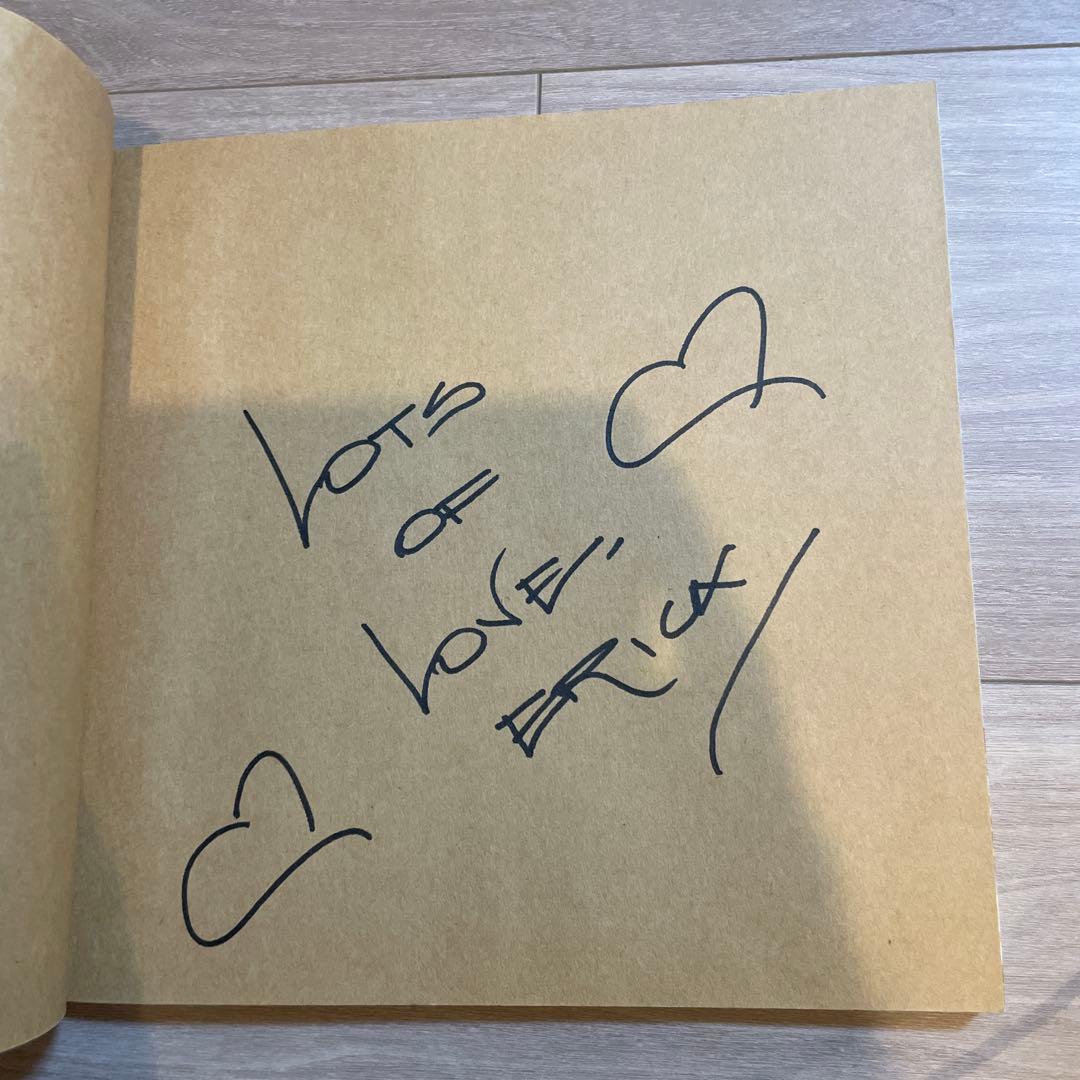 LOTS
OF
LOVE,
ERICK